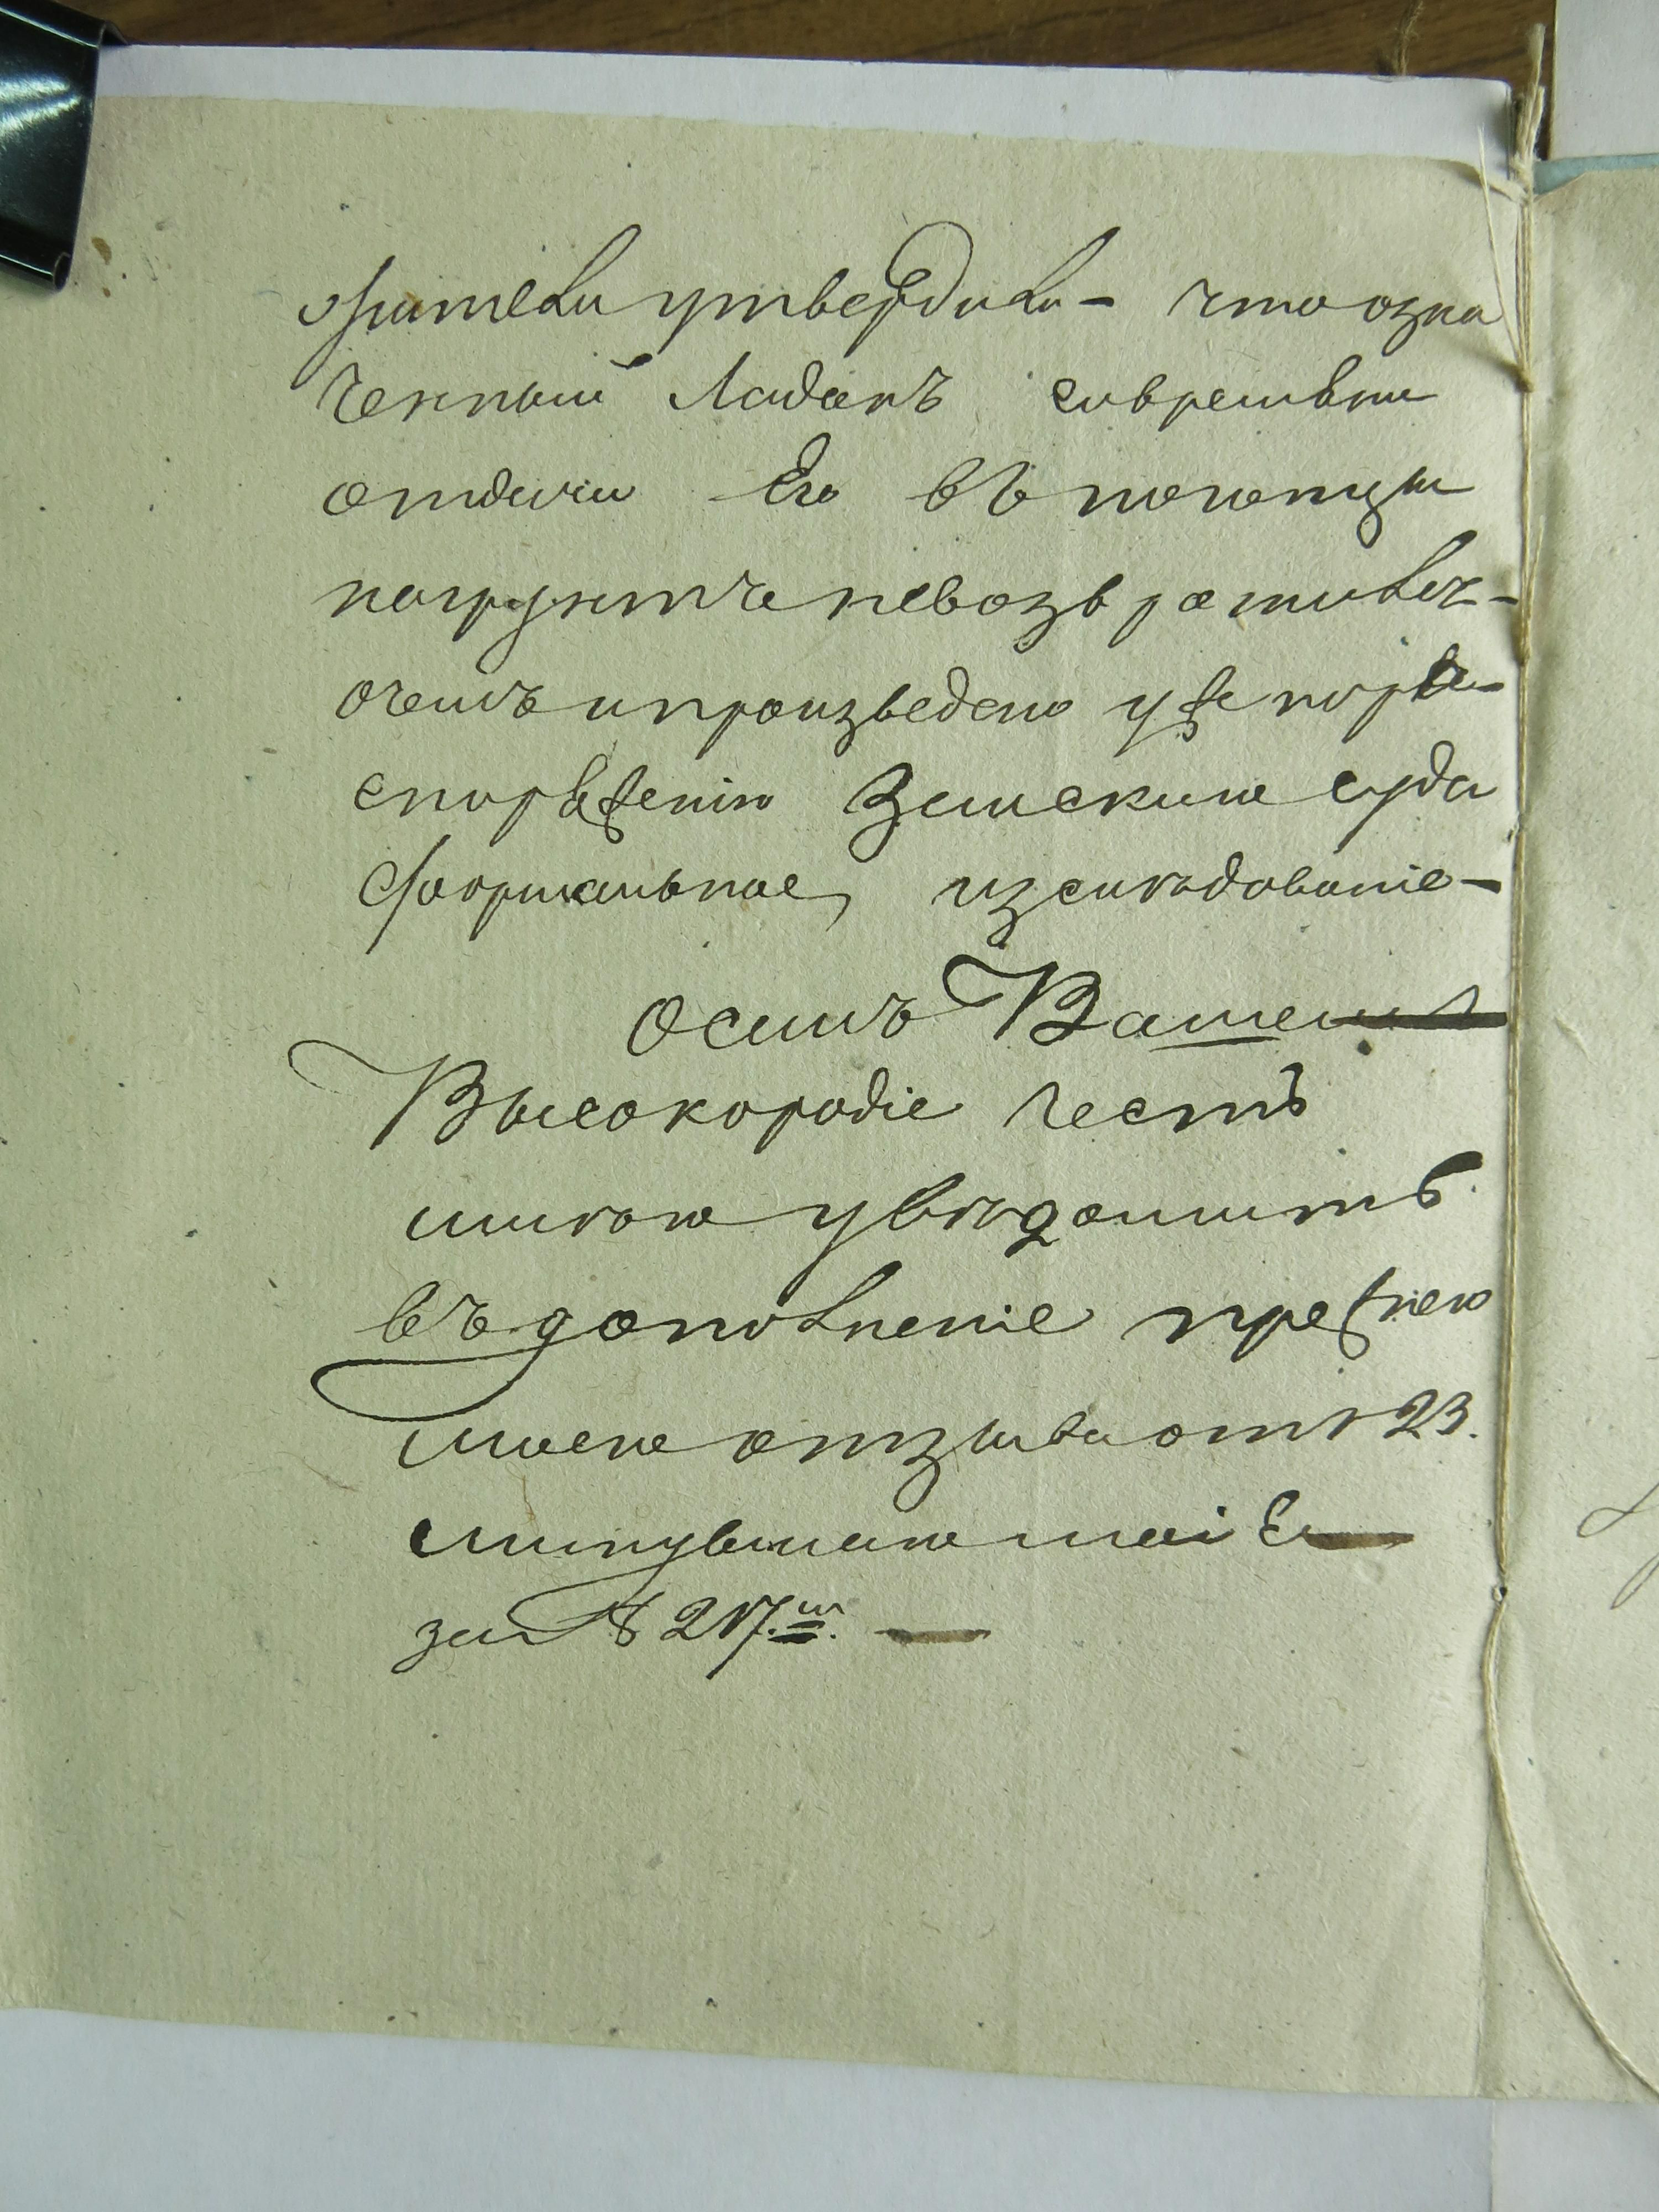 жители утвердили – что озна
ченный Ладанъ современи
отдачи Его въ погонцы
нагрунтъ невозвратился –
очемъ и произведено уже пора
споряженію Земскаго суда
формальное, изследованіе –
Осемъ Ваше
Высокородіе честь
имѣю увѣдомить
въ дополненіе прежнего
моего отзыва отъ 23.
минувшаго маія
за № 217.ᵐ. —